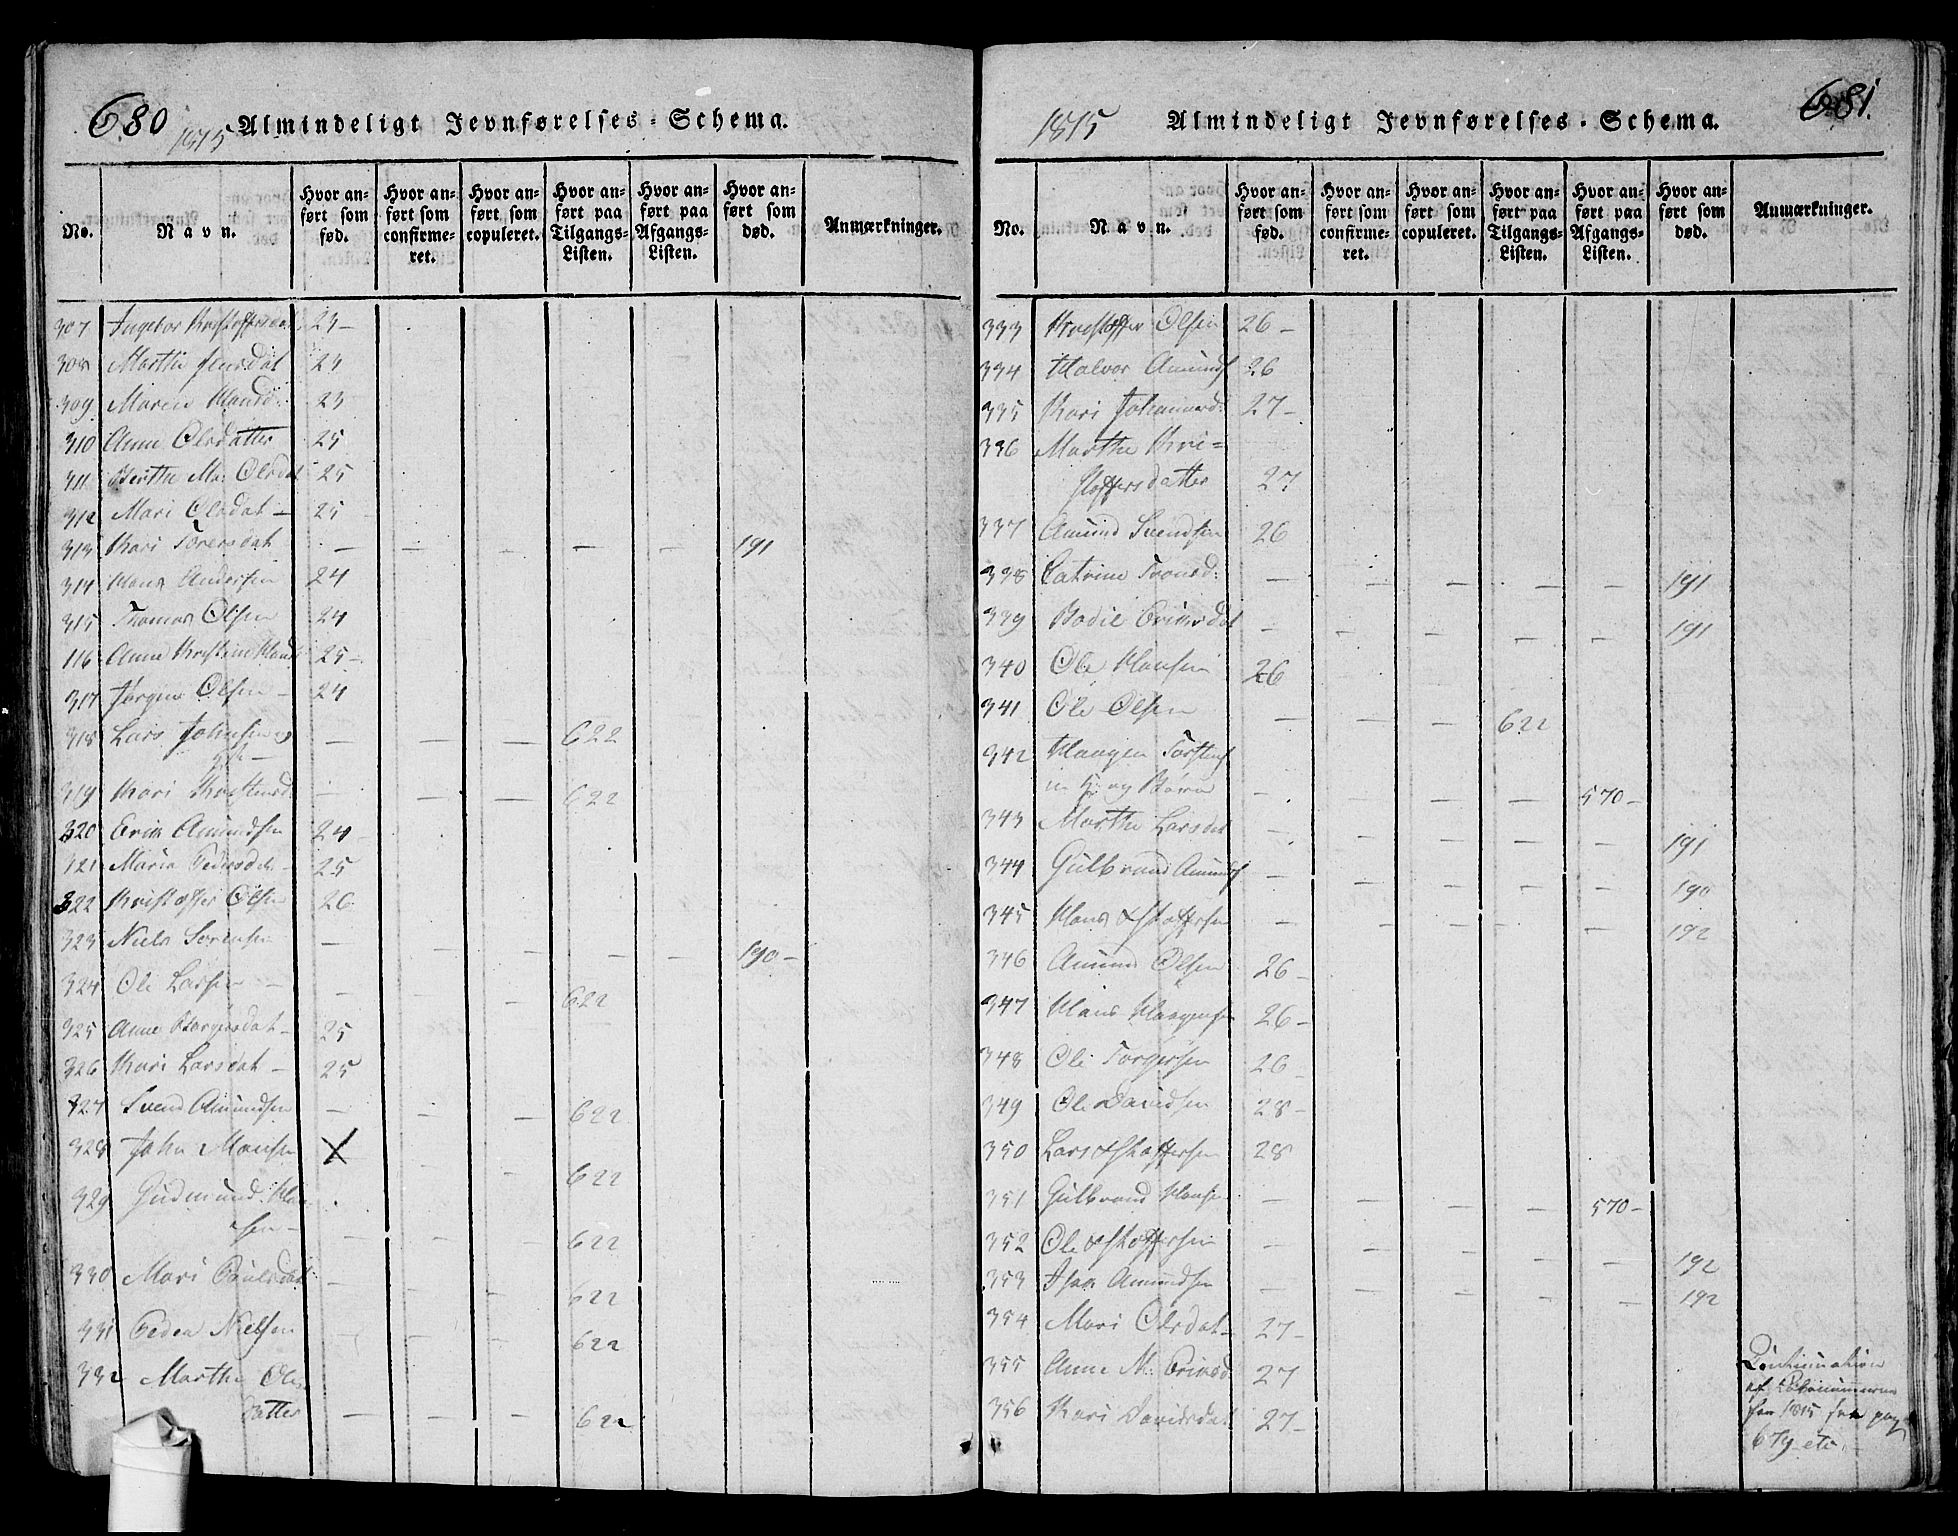 680
1815 Almindeligt Jevnførelses-Schema.
No.
Navn.
Hvor anført som fød.
Hvor anført som confirmeret.
Hvor anført som copuleret.
Hvor anført paa Tilgangs-Listen.
Hvor anført paa Afgangs-Listen.
Hvor anført som død.
Anmærkninger.
307 Ingebor 23-
308 Marthe Jensdat 23
309 Maren Hansd. 23
310 Anne Olsdatter 25
311 Berthe Ma. Olsdat 25
312 Mari Olsdat - 25
313 Kari Torersdat - - - - - 191
314 Hans Andersen 24
315 Thomas Olsen 24
116 Anne Kristine Hansd 25-
317 Jørgen Olsen - 24
318 Lars Johnsen og
- - - 622
319 Kari - - - 622
320 Erik Amundsen 24
121 Maria Pedersdat- 25
322 Kristoffer Olsen 26
323 Niels Sørensen - - - - - 190-
324 Ole Larsen - - - 622
325 Anne Borgersdat- 25
326 Kari Larsdat - 25
327 Svend Amundsen - - - 622
328 John Monsen X - - 622
329 Gudmund Han
sen - - - - 622
330 Mari Poulsdat - 622
331 Peder Nielsen - - - 622
332 Marthe Ols
datter - - - 622
681.
1815 Almindeligt Jevnførelses-Schema.
No.
Navn.
Hvor anført som fød.
Hvor anført som confirmeret.
Hvor anført som copuleret.
Hvor anført paa Tilgangs-Listen.
Hvor anført paa Afgangs-Listen.
Hvor anført som død.
Anmærkninger.
333 Kristoffer Olsen 26-
334 Halvor Amunds 26
335 Kari Johannesd: 27-
336 Marthe Kri=
stoffersdatter 27
337 Amund Svendsen 26
338 Catrine Tronsd: - - - - - 191
339 Bodil Eriksdat - - - - - 191
340 Ole Hansen 26
341 Ole Olsen - - - 622
342 Haagen Torstens
m K: og Børn - - - - 570-
343 Marthe Larsdat - - - - - 191
344 Gulbrand Amunds - - - - - 190
345 Hans Kristoffersen - - - - - 192
346 Amund Olsen 26-
347 Hans Haagensen 26-
348 Ole Torgersen 26
349 Ole Davidsen 28-
350 Lars Kristoffersen 28
351 Gulbrand Hansen - - - - 570-
352 Ole Kristoffersen - - - - - 192
353 Isak Amundsen - - - - - 192
354 Mari Olsdat- 27-
355 Anne M. Eriksd 27
356 Kari Davidsdat 27-
Continuation
af
for 1815 fra pag
679 etc.-